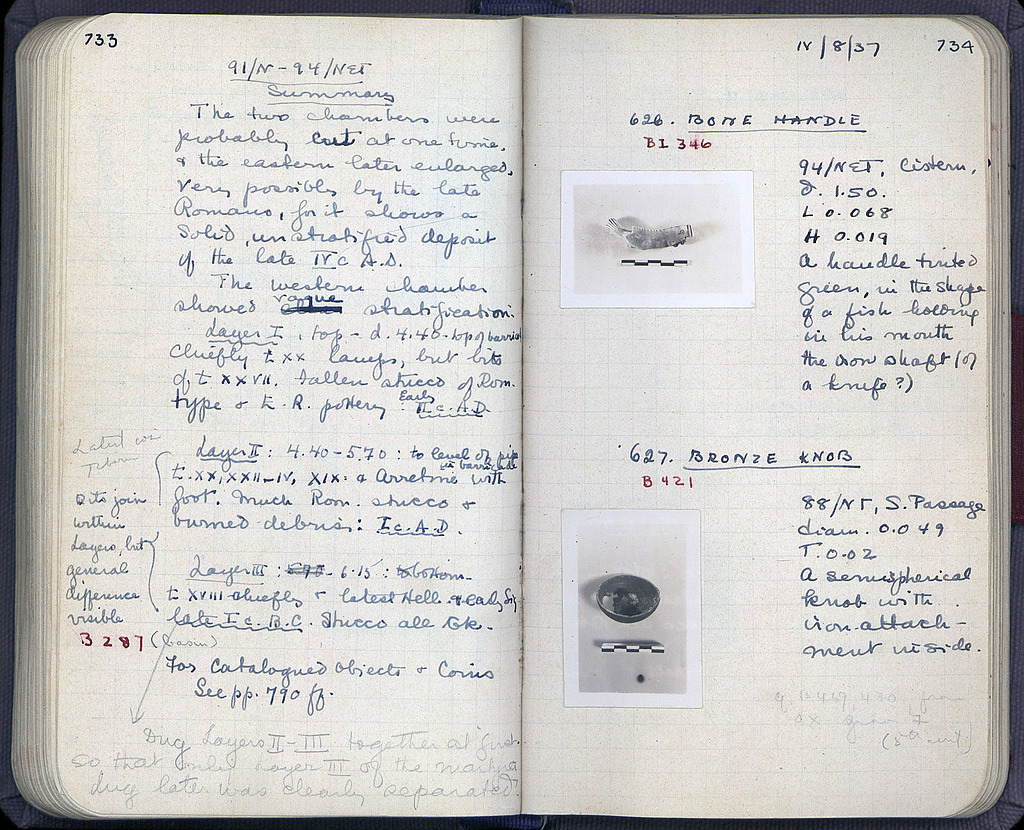 733
91/N - 94/NET
Summary
The two chambers were
probably cut at one time,
& the eastern later enlarged,
very possibly by the late
Romans, for it shows a
solid, unstratified deposit
of the late IV c A.D.
The western chamber
showed vague stratification:
Layer I, top - d. 4.40 - top of
chiefly t. XX lamps, but bits
of t. XXVII. Fallen stucco of Rom.
type & E. R. pottery : Early II c. A.D.
Layer II : 4.40 - 5.70 : to level of pipe
in barricade
t. XX, XXII-IV, XIX: & Arretine with
foot. Much Rom. stucco &
burned debris: I c. A.D.
Latest coin
Bits join
within
Layers, but
general
difference
visible
Layer III : 6.15 : to bottom -
t. XVIII chiefly + latest Hell. & early Sig.
late I c. B.C. Stucco all Gk.
B 287 (basin)
For Catalogued Objects & Coins
See pp. 790 ff.
Dug Layers II - III together at first
so that only Layer III of the
dug later was clearly separated.
IV/8/37 734
626. BONE HANDLE
BI 346
94/NET, Cistern,
d. 1.50.
L 0.068
H 0.019
A handle tinted
green, in the shape
of a fish holding
in his mouth
the iron shaft (of
a knife?)
627. BRONZE KNOB
B 421
88/NT, S. Passage
diam. 0.049
T. 0.02
A semispherical
knob with
iron attach-
ment inside.
(5th cent.)